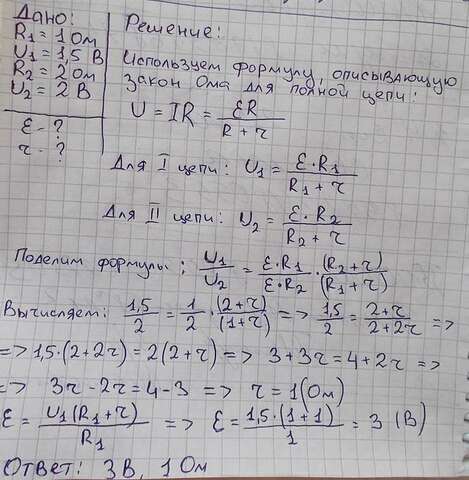 Дано:
R₁ = 1 Ом
U₁ = 1,5 В
R₂ = 2 Ом
U₂ = 2 В
ε - ?
r - ?
Решение:
Используем формулу, описывающую
закон Ома для полной цепи:
U = IR = εR / (R + r)
Для I цепи: U₁ = ε·R₁ / (R₁ + r)
Для II цепи: U₂ = ε·R₂ / (R₂ + r)
Поделим формулы: U₁/U₂ = ε·R₁/ε·R₂ · (R₂ + r)/(R₁ + r)
Вычисляем: 1,5/2 = 1/2 · (2 + r)/(1 + r) => 1,5/2 = (2 + r)/(2 + 2r) =>
=> 1,5·(2 + 2r) = 2(2 + r) => 3 + 3r = 4 + 2r =>
=> 3r - 2r = 4 - 3 => r = 1 (Ом)
ε = U₁(R₁ + r) / R₁ => ε = 1,5·(1 + 1) / 1 = 3 (В)
Ответ: 3 В, 1 Ом